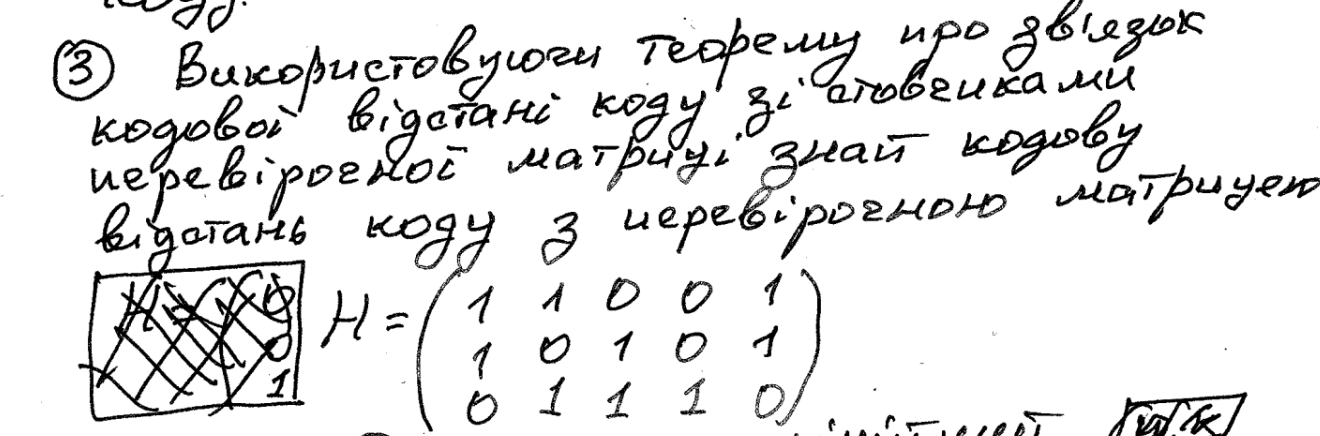 ③ Використовуючи теорему про зв'язок
кодової відстані коду зі стовбчиками
перевірочної матриці знайт кодову
відстань коду з перевірочною матрицею
H = ( 1 1 0 0 1
1 0 1 0 1
0 1 1 1 0 )